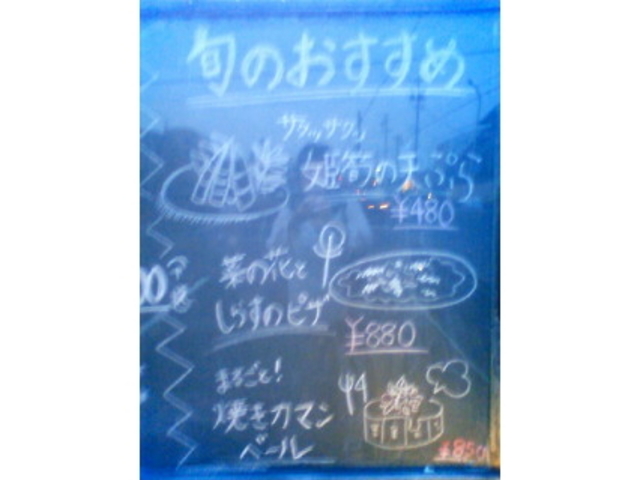 旬のおすすめ
サクッサクッ
姫筍の天ぷら
¥480
菜の花と
しらすのピザ
¥880
まるごと!
焼きカマン
ベール
¥850